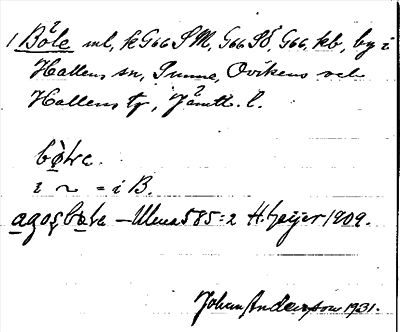 1 Böle ml, k G66 SM, G66 SÖ, G66, kb, by i
Hallens sn, Sunne, Ovikens och
Hallens tg, Jämtl. l.
bø̀lɛ.
i ~ = i B.
– Ulma 585:2 H. Geijer 1909.
Johan Anderson 1931.